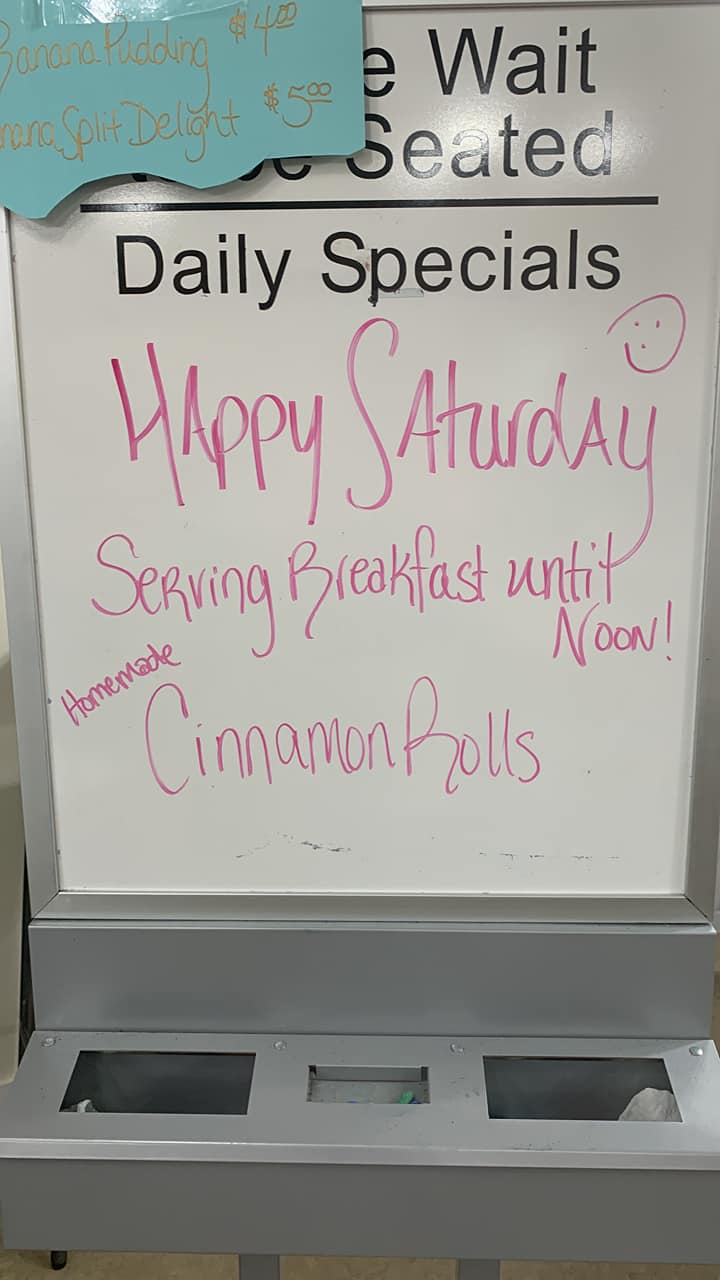 Banana Pudding $4.00
Banana Split Delight $5.00
Wait
Seated
Daily Specials
HAppy SAturdAy
Serving Breakfast until
Noon!
Homemade
Cinnamon Rolls